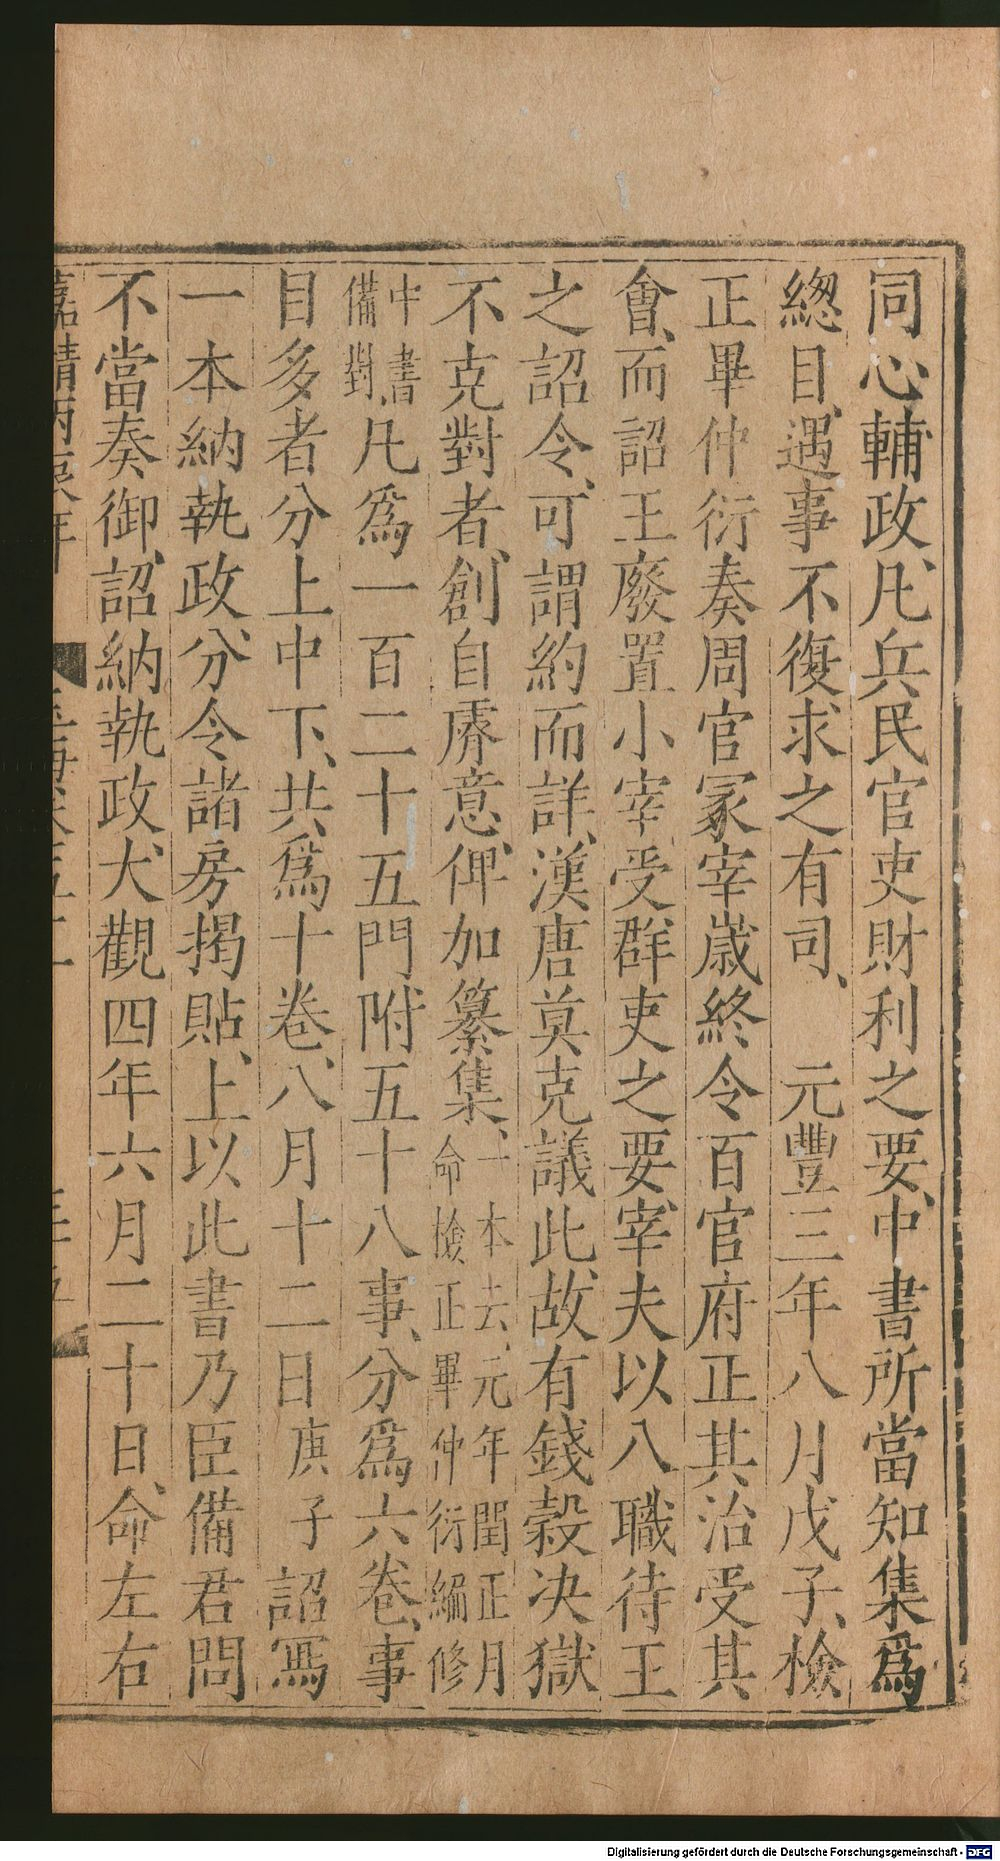 同心輔政、凡兵民官吏財利之要、中書所當知集爲
總目、遇事不復求之有司、　元豐三年八月戊子、檢
正畢仲衍奏周官冢宰歳終令百官府正其治受其
會、而詔王廢置小宰受群吏之要、宰夫以八職待王
之詔令、可謂約而詳、漢唐莫克議此、故有錢穀决獄
不克對者、創自𪧐意、俾加纂集、一本去、元年閏正月命檢正畢仲衍編修
中書備對、凡爲一百二十五門附五十八事、分爲六卷、事
目多者分上中下、共爲十卷、八月十二日庚子詔寫
一本納執政、分令諸房揭貼、上以此書乃臣備君問
不當奏御、詔納執政、大觀四年六月二十日、命左右
嘉靖丙
Digitalisierung gefördert durch die Deutsche Forschungsgemeinschaft - DFG